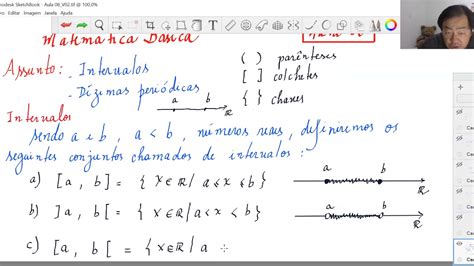 Autodesk SketchBook - Aula 08_V02.tif @ 100.0%
Matemática Básica
Assunto: - Intervalos
- Dízimas periódicas
( ) parênteses
[ ] colchetes
{ } chaves
a b
Intervalos
Sendo a e b, a < b, números reais, definiremos os
seguintes conjuntos chamados de intervalos:
a) [a, b] = { x ∈ ℝ / a ≤ x ≤ b }
a b ℝ
b) ]a, b[ = { x ∈ ℝ / a < x < b }
a b ℝ
c) [a, b[ = { x ∈ ℝ / a